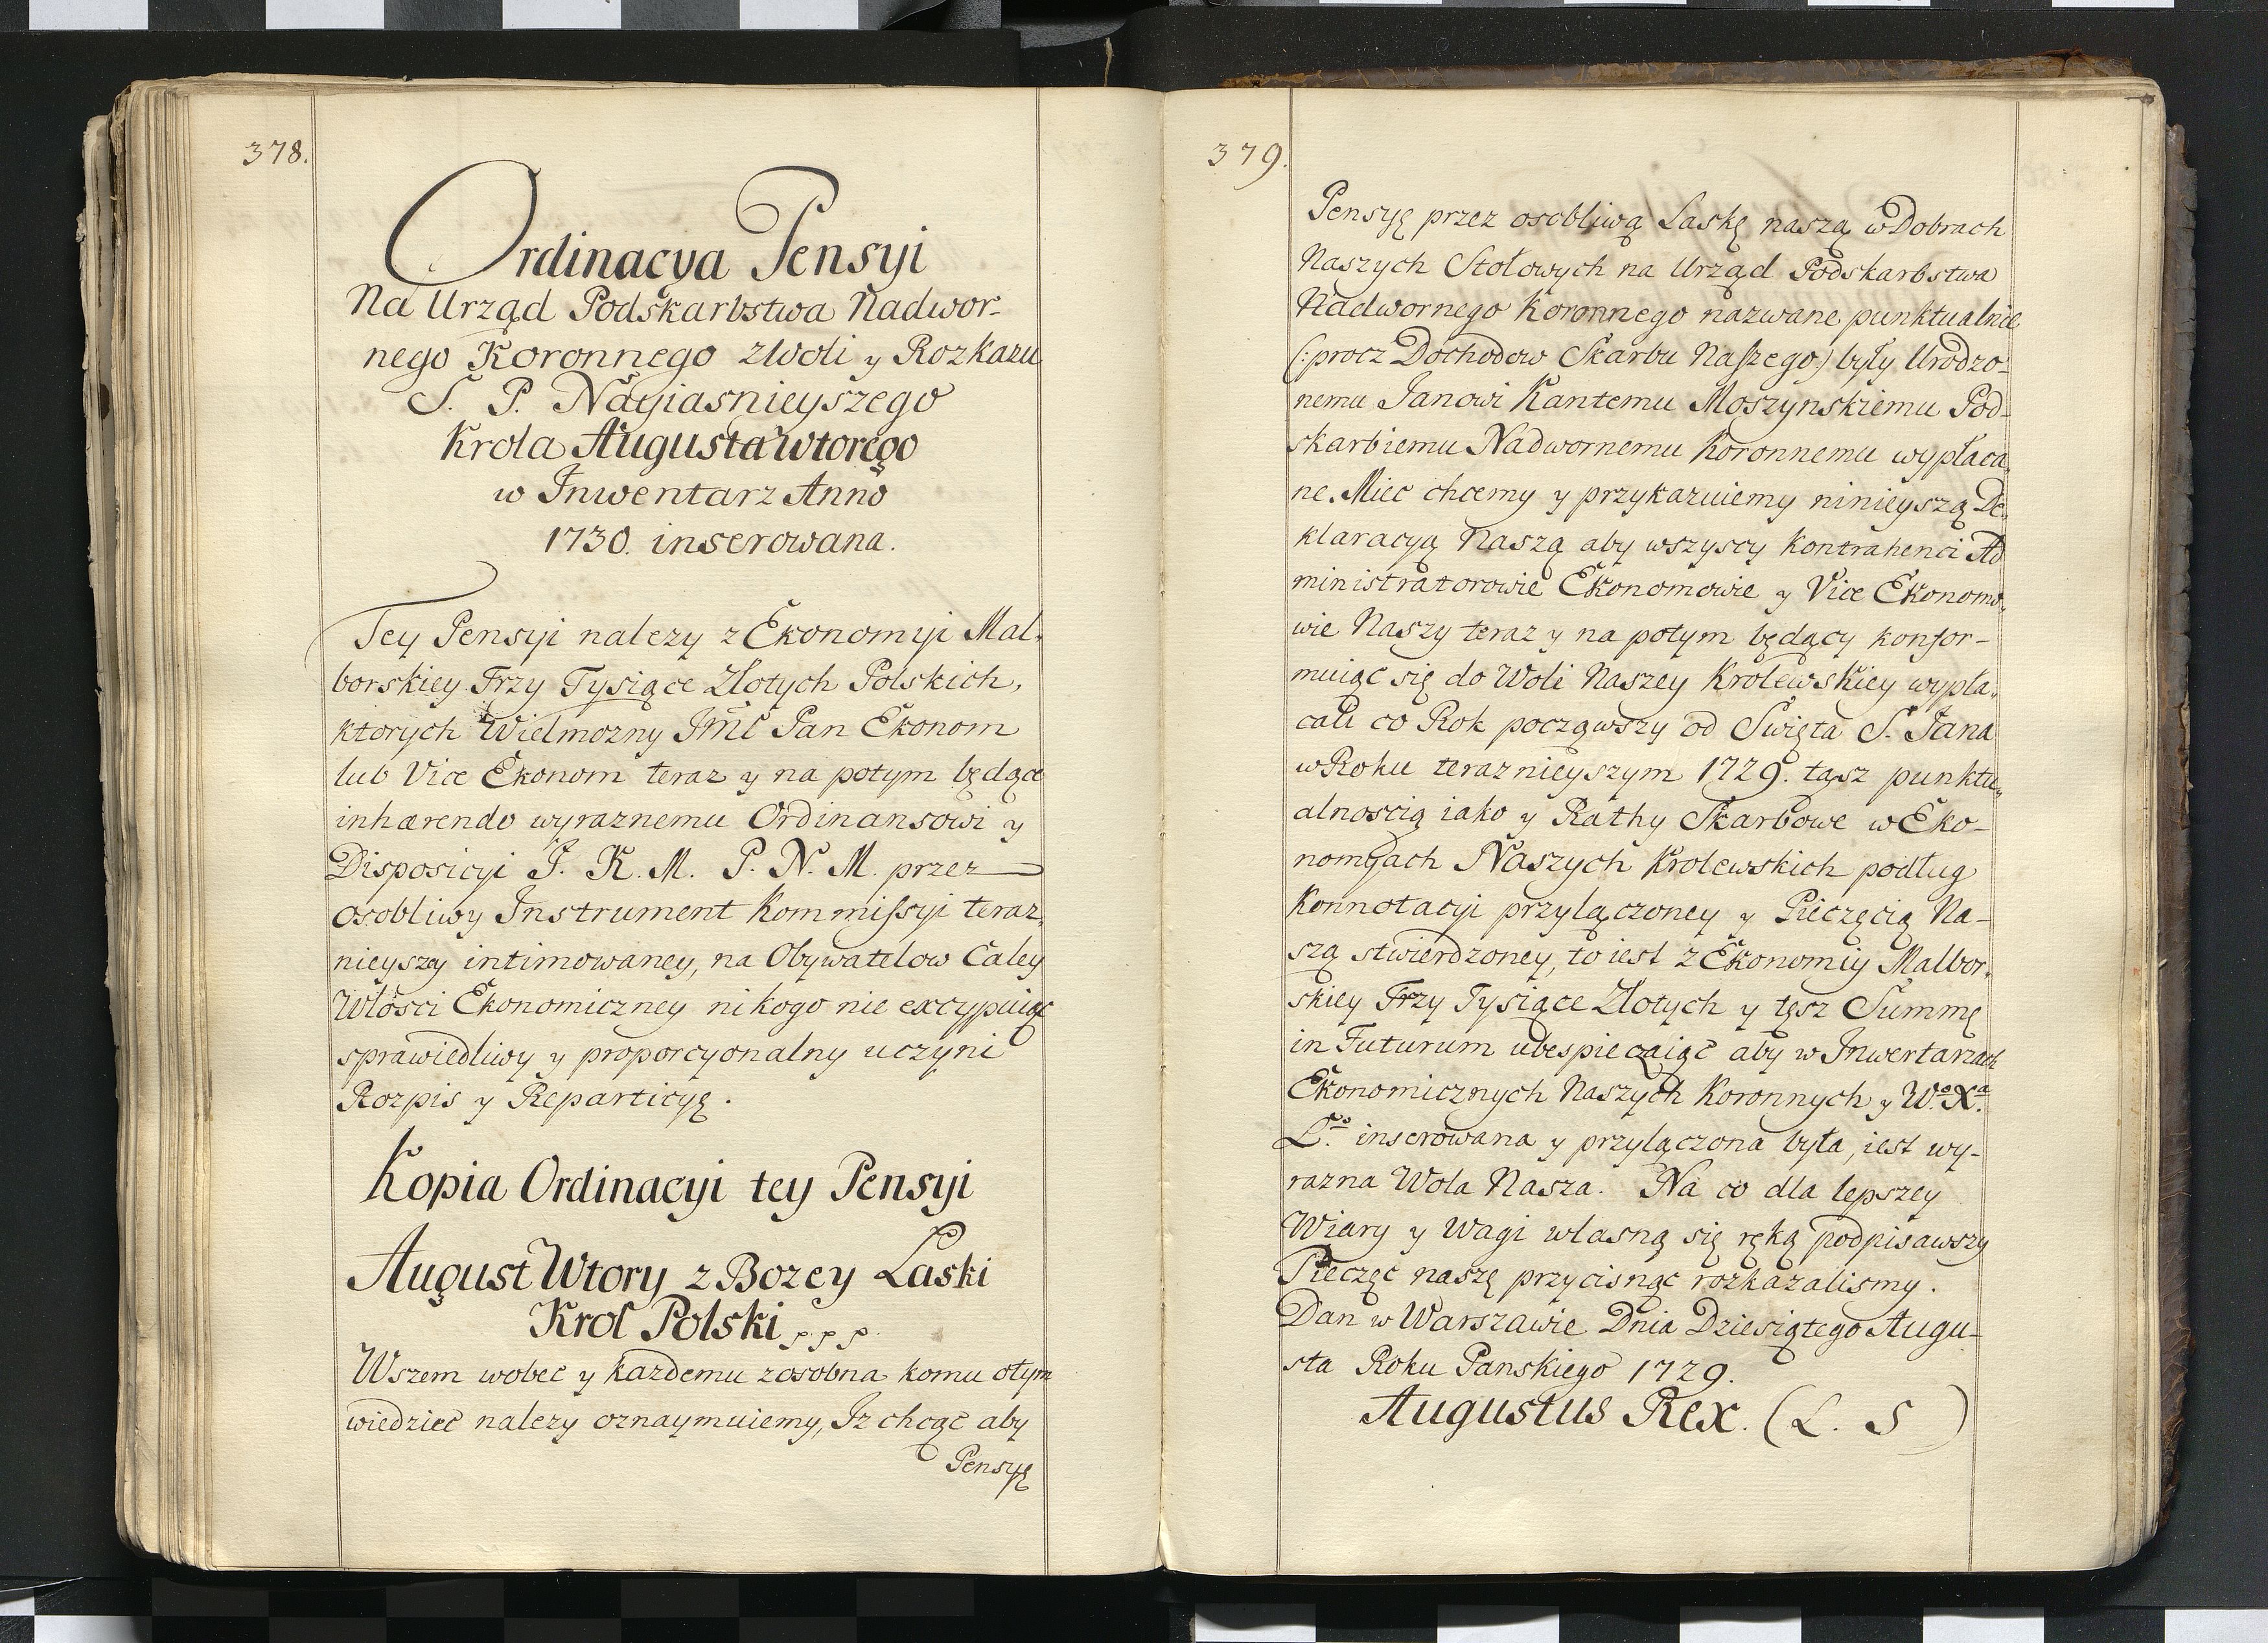 378.
Ordinacya Pensyi
Na Urząd Podskarbstwa Nadwor-
nego Koronnego zWoli y Rozkazu
S. P. Nayiasnieyszego
Krola Augusta Wtorego
w Inwentarz Anno
1730. inserowana.
Tey Pensyi nalezy z Ekonomyi Mal-
borskiey Trzy Tysiące Złotych Polskich,
ktorych Wielmozny JMC Pan Ekonom
lub Vice Ekonom teraz y na potym będące
inhærendo wyraznemu Ordinansowi y
Disposicyi J. K. M. P. N. M. przez
osobliwy Instrument Kommissyi teraz-
nieyszey intimowaney, na Obywatelow Całey
Włosci Ekonomiczney nikogo nie excypuiąc
sprawiedliwy y proporcyonalny uczyni
Rozpis y Reparticyę.
Kopia Ordinacyi tey Pensyi
August Wtory z Bozey Łaski
Krol Polski p. p. p.
Wszem wobec y kazdemu zosobna komu otym
wiedziec nalezy oznaymuiemy, Iz chcąc aby
Pensyę
379.
Pensyę przez osobliwą Łaskę naszą w Dobrach
Naszych Stołowych na Urząd Podskarbstwa
Nadwornego Koronnego nazwane punktualnie
(: procz Dochodow Skarbu Naszego :) były Urodzo-
nemu Janowi Kantemu Moszynskiemu Pod-
skarbiemu Nadwornemu Koronnemu wypłaca-
ne. Miec chcemy y przykazuiemy ninieyszą De-
klaracyą Naszą aby wszyscy Kontrahenci Ad
ministratorowie Ekonomowie y Vice Ekonomo-
wie Naszy teraz y na potym będący konfor-
muiąc się do Woli Naszey Krolewskiey wypła-
cali co Rok począwszy od Swięta S. Jana
w Roku teraznieyszym 1729. tąsz punktu-
alnoscią iako y Rathy Skarbowe w Eko-
nomyach Naszych Krolewskich podług
Konnotacyi przyłączoney y Pieczęcią Na-
szą stwierdzoney, to iest z Ekonomiy Malbor-
skiey Trzy Tysiące Złotych y tęsz Summę
in Futurum ubespieczaiąc aby w Inwertarzach
Ekonomicznych Naszych Koronnych y W.o X.a
L.o inserowana y przyłączona była, iest wy-
razna Wola Nasza. Na co dla lepszey
Wiary y Wagi własną się ręką podpisawszy
Pieczęc naszę przycisnąc rozkazalismy.
Dan w Warszawie Dnia Dziesiątego Augu-
sta Roku Panskiego 1729.
Augustus Rex. (L. S )